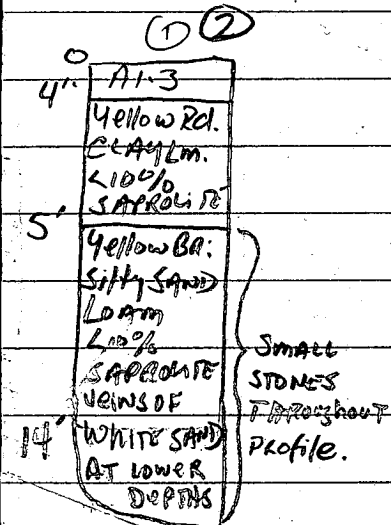 ① ②
0
A1-3
4"
Yellow Rd.
CLAY Lm.
<10%
SAPROLITE
5'
Yellow BR.
Silty SAND
LOAM
<10%
SAPROLITE
VEINS OF
14' WHITE SAND
AT LOWER
DEPTHS
SMALL
STONES
THROUGHOUT
PROFILE.